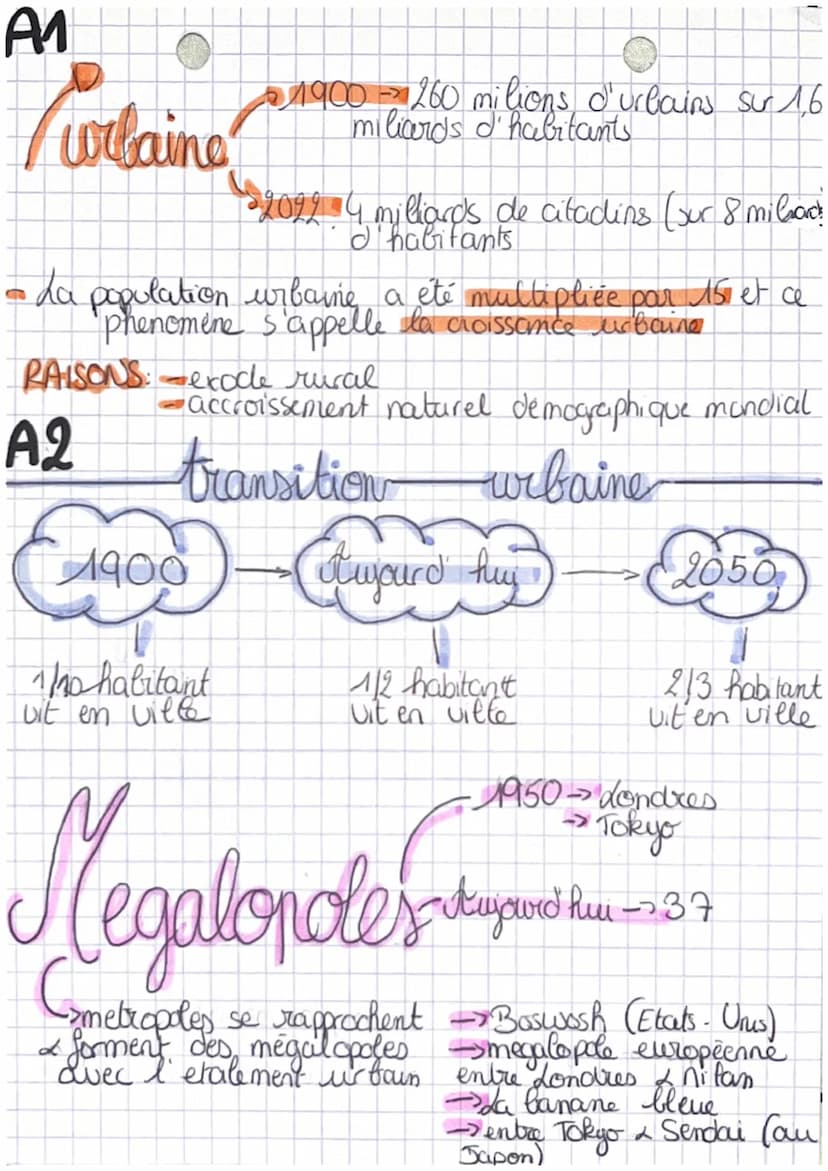 A1
urbaine
1900 -> 260 milions d'urbains sur 1,6
miliards d'habitants
2022 4 milliards de citadins (sur 8 miliards
d'habitants
- La population urbaine a été multipliée par 15 et ce
phenomène s'appelle la croissance urbaine
RAISONS: - exode rural
- accroissement naturel démographique mondial
A2
transition urbaine
1900 -> Aujourd'hui -> 2050
1/10 habitant
vit en ville
1/2 habitant
vit en ville
2/3 habitant
vit en ville
Megalopoles
1950 -> Londres
-> Tokyo
Aujourd'hui -> 37
-> metropoles se rapprochent
& forment des mégalopoles
avec l'etalement urbain
-> Boswosh (Etats-Unis)
-> megalopole européenne
entre Londres & Milan
-> La banane bleue
-> entre Tokyo & Sendai (au
Japon)